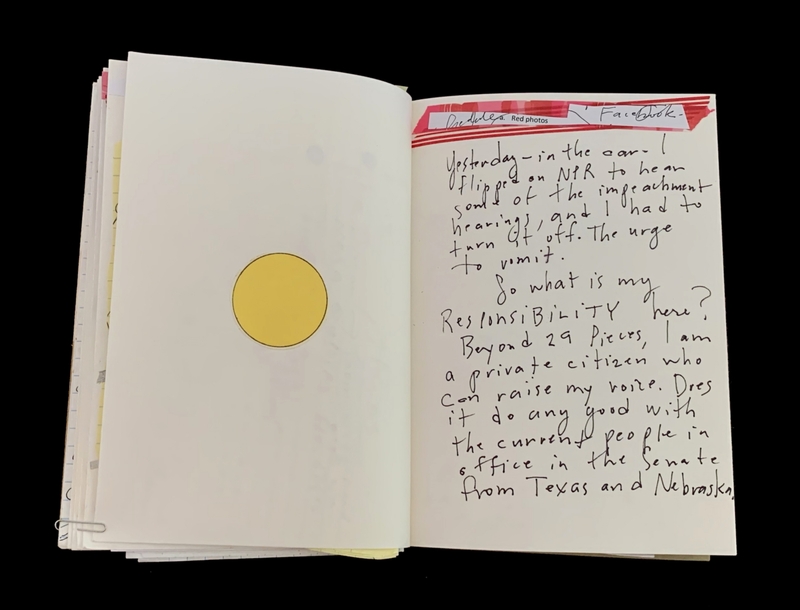 Red photos
Facebook.
Yesterday - in the car - I
flipped on NPR to hear
some of the impeachment
hearings, and I had to
turn it off. The urge
to vomit.
So what is my
RESPONSIBILITY here?
Beyond 29 Pieces, I am
a private citizen who
can raise my voice. Does
it do any good with
the current people in
office in the Senate
from Texas and Nebraska.